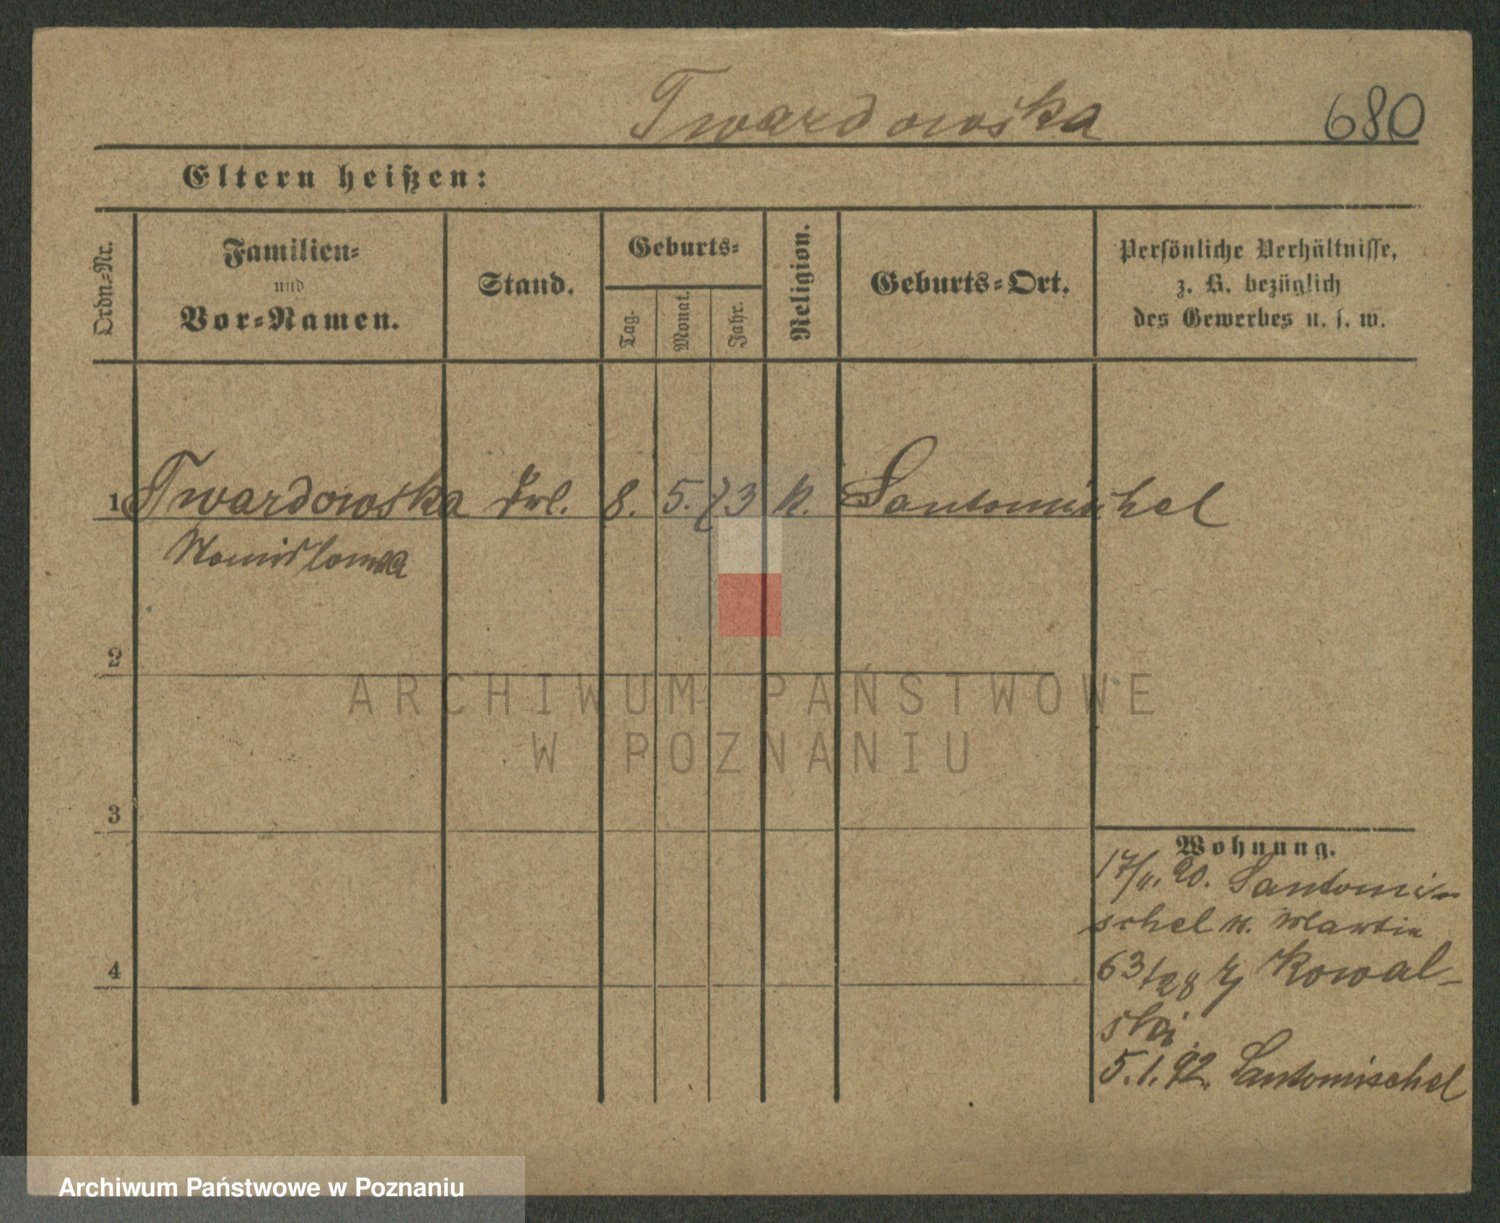 Twardowska 680
Eltern heißen:
Ordn.-Nr.
Familien-
und
Vor-Namen.
Stand.
Geburts-
Tag.
Monat.
Jahr.
Religion.
Geburts-Ort.
Persönliche Verhältnisse,
z. B. bezüglich
des Gewerbes u. s. w.
1 Twardowska Frl. 8. 5. 73 k. Santomischel
2
3
4
Wohnung.
17/11. 90. Santomi-
schel St. Martin
63/28 Kowal-
ski
5.1.92. Santomischel
ARCHIWUM PAŃSTWOWE
W POZNANIU
Archiwum Państwowe w Poznaniu